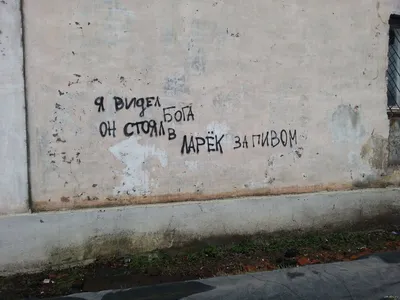 Я ВИДЕЛ БОГА
ОН СТОЯЛ В ЛАРЁК ЗА ПИВОМ